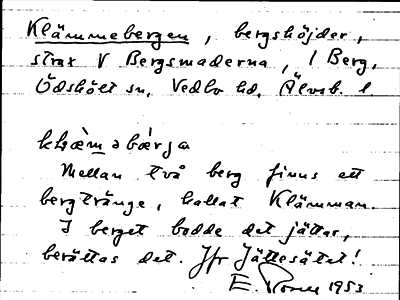 Klämmebergen, bergshöjder,
strax V Bergsmaderna, 1 Berg,
Ödskölt sn, Vedbo hd, Älvsb. l
klæ̀m ə bæ̀rja
Mellan två berg finns ett
bergtränge, kallat Klämman.
I berget bodde det jättar,
berättas det. Jfr Jättesätet!
E. 1953